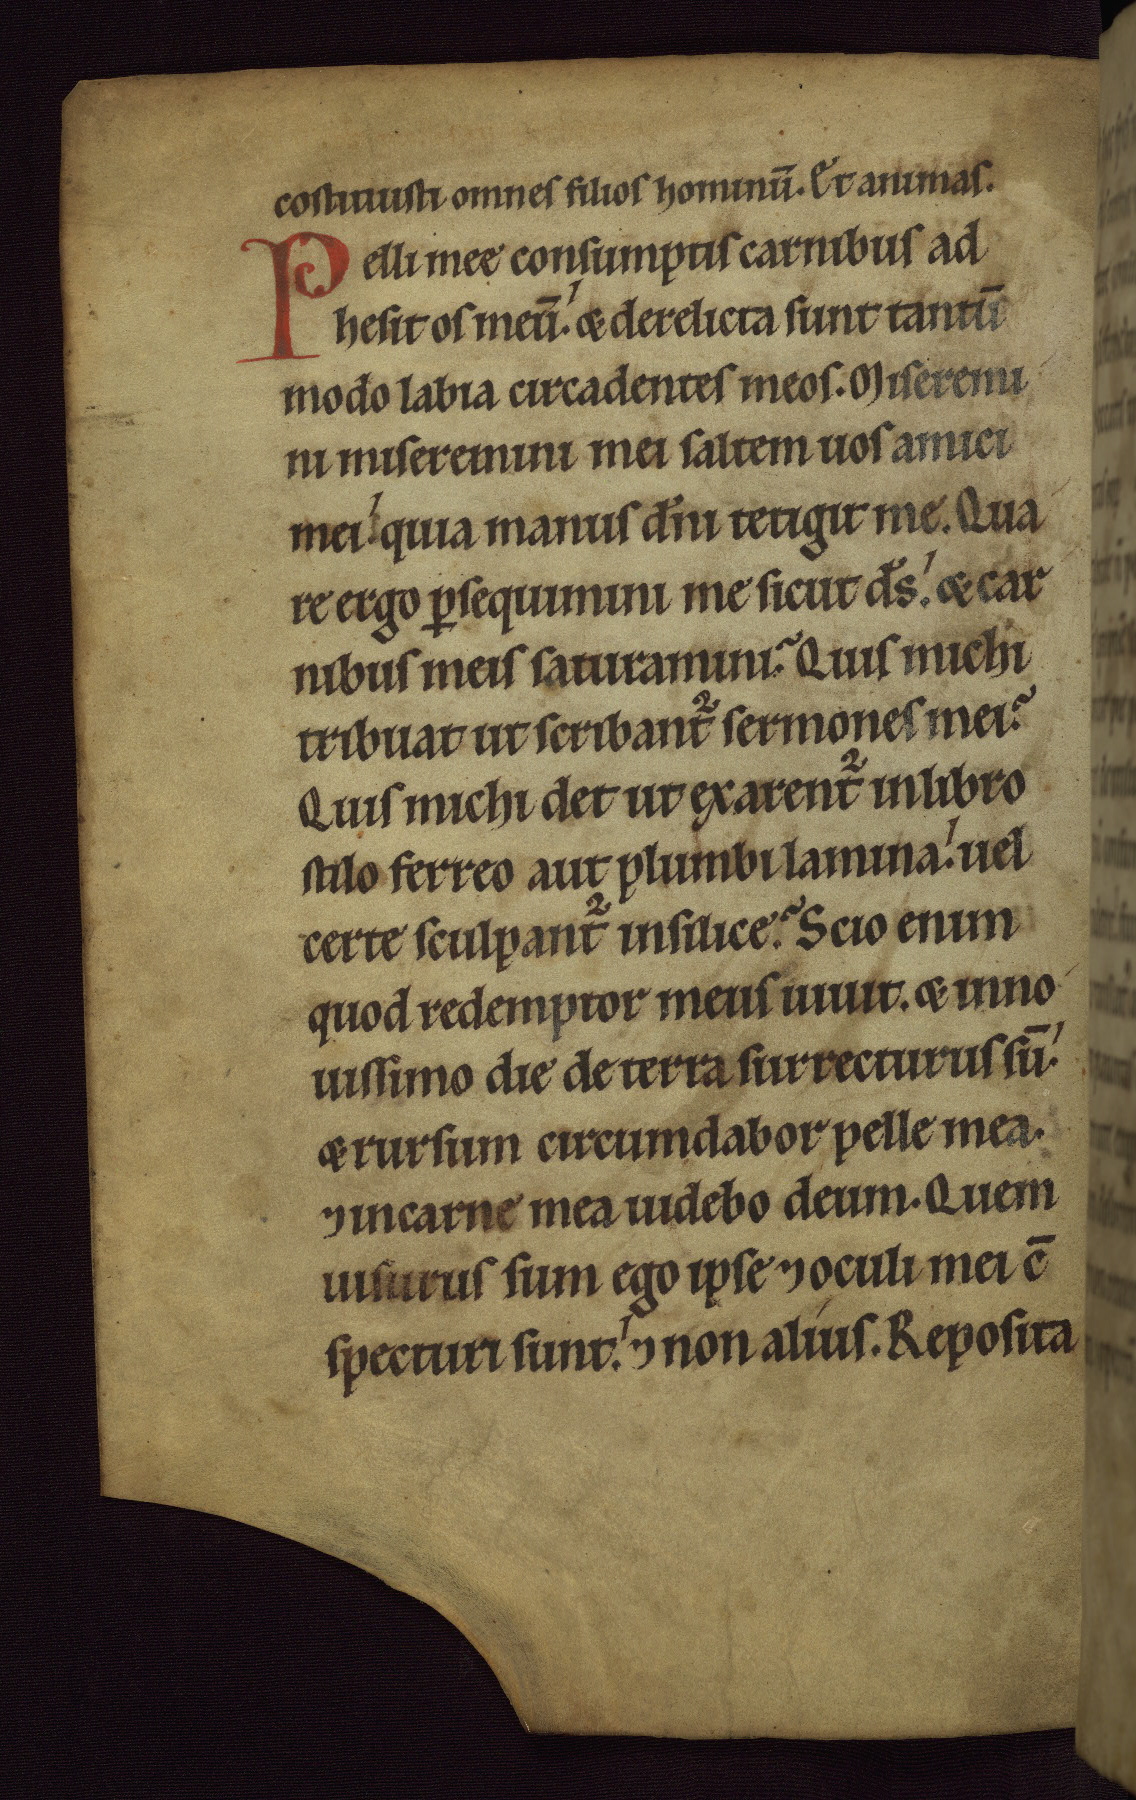 costituisti omnes filios hominū. Et animas.
Pelli mee consumptis carnibus ad
hesit os meū. & derelicta sunt tantū
modo labia circadentes meos. Miseremi
ni miseremini mei saltem uos amici
mei. quia manus dn̄i tetigit me. Qua
re ergo ꝑsequimini me sicut ds̄. & car
nibus meis saturamini? Quis michi
tribuat ut scribant᷑ sermones mei?
Quis michi det ut exarent᷑ in libro
stilo ferreo aut plumbi lamina. uel
certe sculpant᷑ in silice? Scio enim
quod redemptor meus uiuit. & in no
uissimo die de terra surrecturus sū.
& rursum circumdabor pelle mea.
⁊ in carne mea uidebo deum. Quem
uisurus sum ego ipse ⁊ oculi mei c̄
specturi sunt. ⁊ non alíus. Reposita